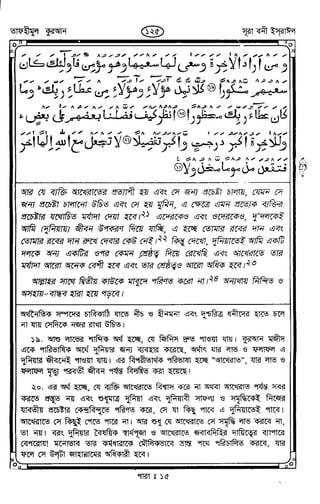 তাফহীমুল কুরআন
১২৫
সূরা বনী ইসরাঈল
وَمَنْ أَرَادَ الْآخِرَةَ وَسَعَىٰ لَهَا سَعْيَهَا وَهُوَ مُؤْمِنٌ فَأُولَٰئِكَ كَانَ
سَعْيُهُمْ مَشْكُورًا ⑲ كُلًّا نُمِدُّ هَٰؤُلَاءِ وَهَٰؤُلَاءِ مِنْ عَطَاءِ رَبِّكَ وَمَا
كَانَ عَطَاءُ رَبِّكَ مَحْظُورًا ⑳ انْظُرْ كَيْفَ فَضَّلْنَا بَعْضَهُمْ عَلَىٰ بَعْضٍ
وَلَلْآخِرَةُ أَكْبَرُ دَرَجَاتٍ وَأَكْبَرُ تَفْضِيلًا ㉑ لَا تَجْعَلْ مَعَ اللَّهِ إِلَٰهًا آخَرَ
فَتَقْعُدَ مَذْمُومًا مَخْذُولًا ㉒
আর যে ব্যক্তি আখেরাতের প্রত্যাশী হয় এবং সে জন্য প্রচেষ্টা চালায়, যেমন সে
জন্য প্রচেষ্টা চালানো উচিত এবং সে হয় মুমিন, এ ক্ষেত্রে এমন প্রত্যেক ব্যক্তির
প্রচেষ্টার যথোচিত মর্যাদা দেয়া হবে।২১ এদেরকেও এবং ওদেরকেও, দু'দলকেই
আমি (দুনিয়ায়) জীবন উপকরণ দিয়ে যাচ্ছি, এ হচ্ছে তোমার রবের দান এবং
তোমার রবের দান রুখে দেবার কেউ নেই।২২ কিন্তু দেখো, দুনিয়াতেই আমি একটি
দলকে অন্য একটির ওপর কেমন শ্রেষ্ঠত্ব দিয়ে রেখেছি এবং আখেরাতে তার
মর্যাদা আরো অনেক বেশী হবে এবং তার শ্রেষ্ঠত্বও আরো অধিক হবে।২৩
আল্লাহর সাথে দ্বিতীয় কাউকে মাবুদে পরিণত করো না।২৪ অন্যথায় নিন্দিত ও
অসহায়-বান্ধব হারা হয়ে পড়বে।
অর্থনৈতিক সম্পদের চাবিকাঠি যাতে নীচ ও হীনমনা এবং দুশ্চরিত্র ধনীদের হাতে চলে
না যায় সেদিকে নজর রাখা উচিত।
১৯. আশু লাভের শাব্দিক অর্থ হচ্ছে, যে জিনিস দ্রুত পাওয়া যায়। কুরআন মজীদ
একে পারিভাষিক অর্থে দুনিয়ার জন্য ব্যবহার করেছে, অর্থাৎ যার লাভ ও ফলাফল এ
দুনিয়ার জীবনেই পাওয়া যায়। এর বিপরীতার্থক পরিভাষা হচ্ছে "আখেরাত", যার লাভ ও
ফলাফল মৃত্যু পরবর্তী জীবন পর্যন্ত বিলম্বিত করা হয়েছে।
২০. এর অর্থ হচ্ছে, যে ব্যক্তি আখেরাতে বিশ্বাস করে না অথবা আখেরাত পর্যন্ত সবর
করতে প্রস্তুত নয় এবং শুধুমাত্র দুনিয়া এবং দুনিয়াবী সাফল্য ও সমৃদ্ধিকেই নিজের
যাবতীয় প্রচেষ্টার কেন্দ্রবিন্দুতে পরিণত করে, সে যা কিছু পাবে এ দুনিয়াতেই পাবে।
আখেরাতে সে কিছুই পেতে পারে না। আর শুধু যে আখেরাতে সে সমৃদ্ধি লাভ করবে না,
তা নয়। বরং দুনিয়ার বৈষয়িক স্বার্থপূজা ও আখেরাতে জবাবদিহির দায়িত্বের ব্যাপারে
বেপরোয়া মনোভাব তার কর্মধারাকে মৌলিকভাবে ভ্রান্ত পথে পরিচালিত করবে, যার
ফলে সে উল্টা জাহান্নামের অধিকারী হবে।
পারা : ১৫